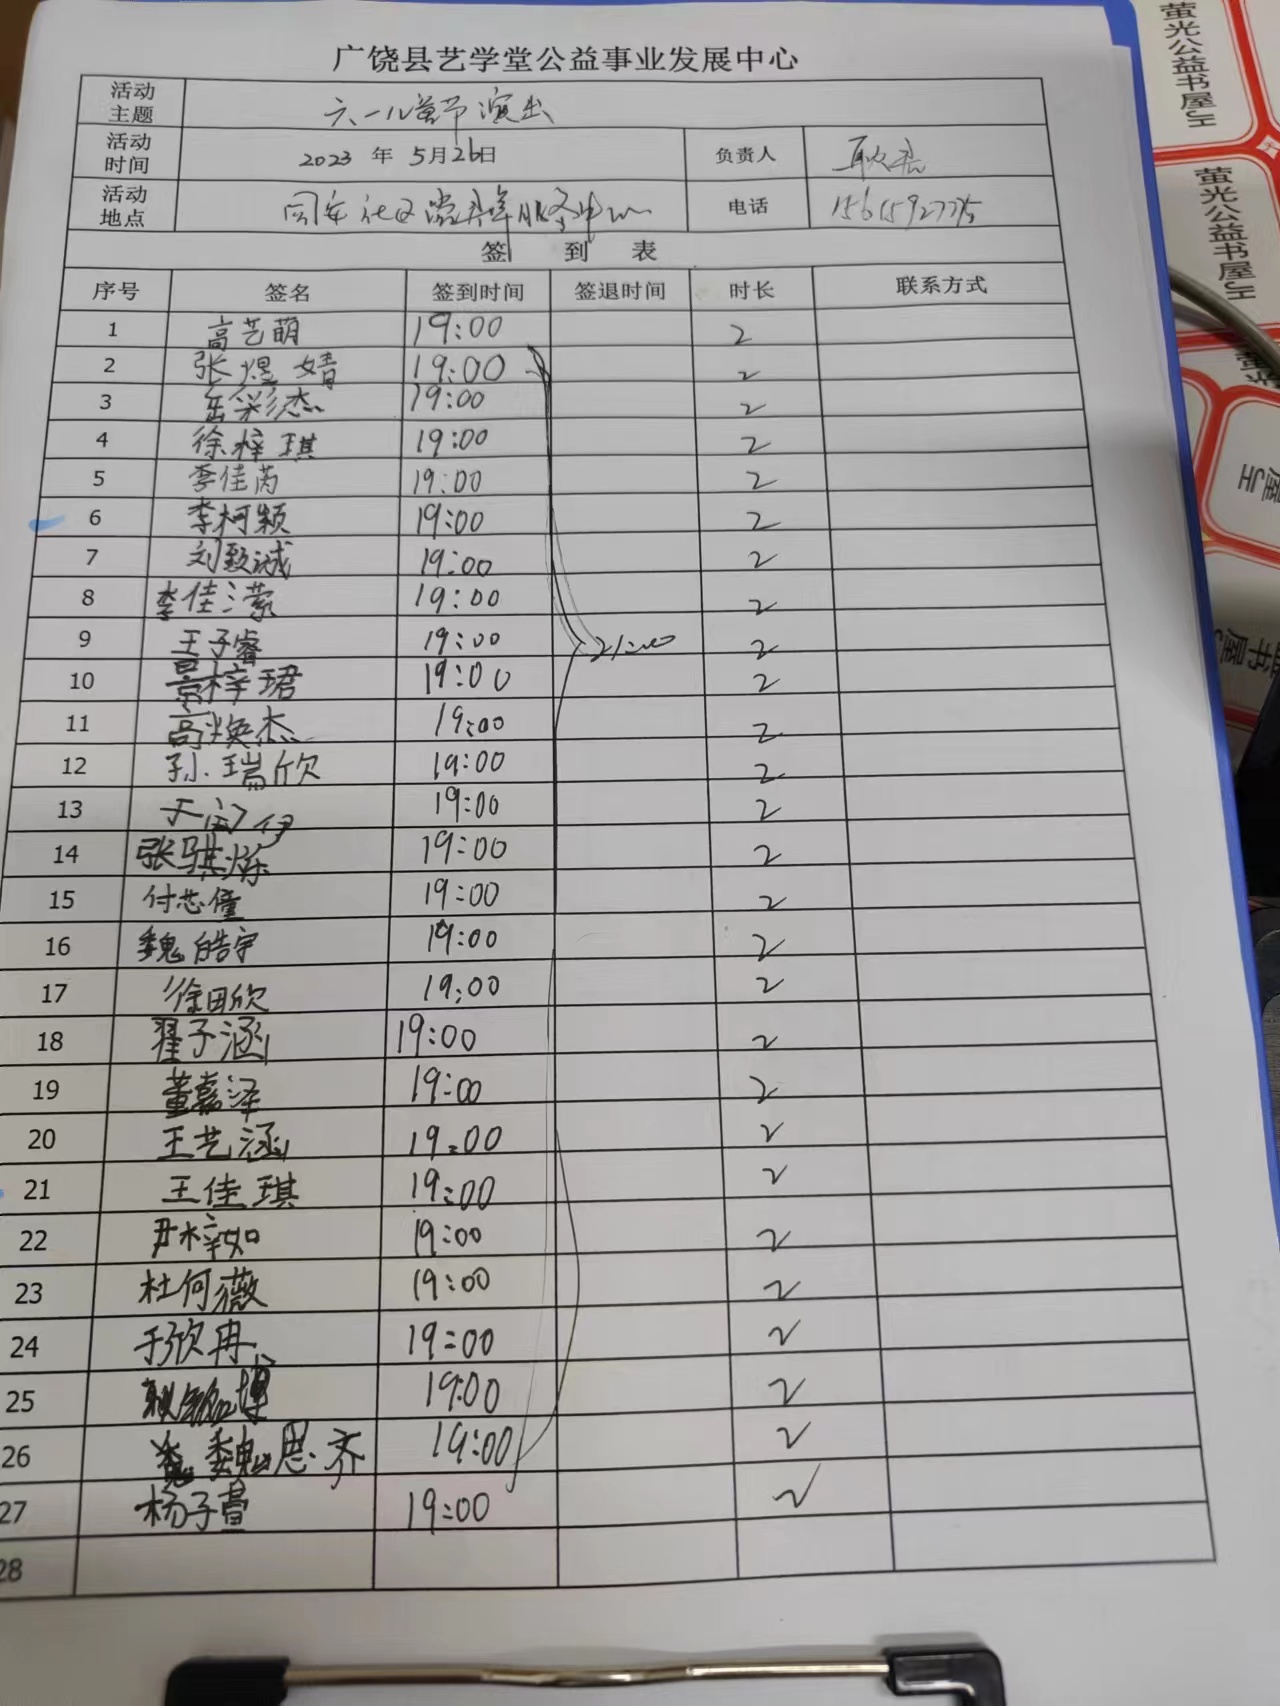 广饶县艺学堂公益事业发展中心
活动主题 六一儿童节演出
活动时间 2023 年 5月26日 负责人
活动地点 同安社区 电话
签 到 表
序号 签名 签到时间 签退时间 时长 联系方式
1 高艺萌 19:00 2
2 张煜婧 19:00 2
3 岳彩杰 19:00 2
4 徐梓琪 19:00 2
5 李佳芮 19:00 2
6 李柯颖 19:00 2
7 刘致诚 19:00 2
8 李佳潆 19:00 2
9 王子睿 19:00 21:00 2
10 景梓珺 19:00 2
11 高焕杰 19:00 2
12 孙瑞欣 19:00 2
13 19:00 2
14 张骐烁 19:00 2
15 付芯僮 19:00 2
16 魏皓宇 19:00 2
17 徐田欣 19:00 2
18 翟子涵 19:00 2
19 董嘉泽 19:00 2
20 王艺涵 19:00 2
21 王佳琪 19:00 2
22 尹梓如 19:00 2
23 杜何薇 19:00 2
24 于欣冉 19:00 2
25 19:00 2
26 魏思齐 19:00 2
27 杨子萱 19:00 2
28
萤光公益书屋
萤光公益书屋